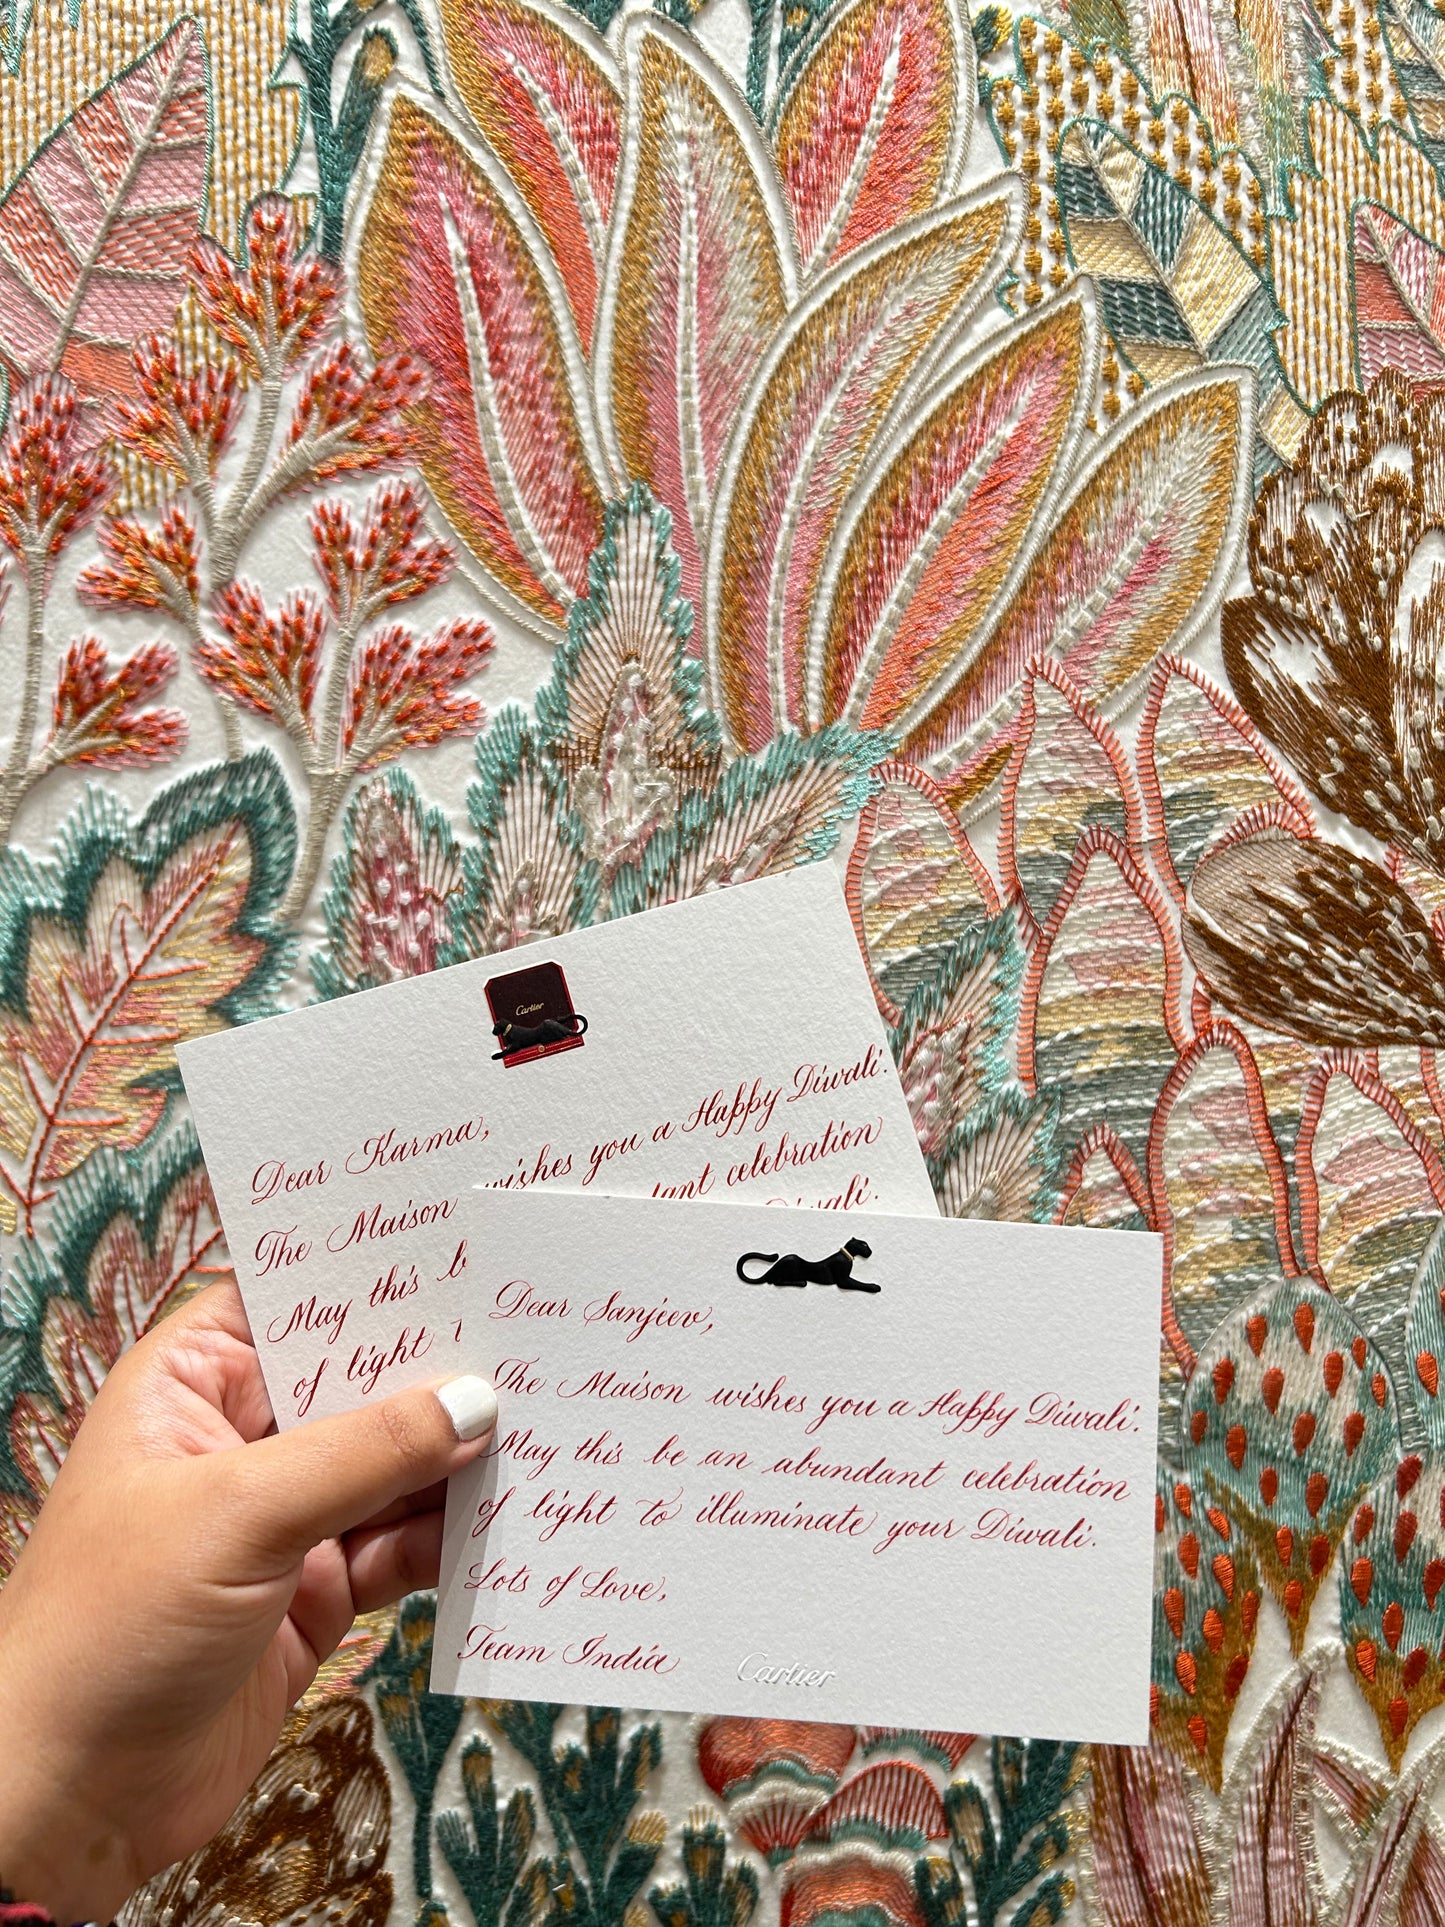 Cartier
Dear Karma,
The Maison wishes you a Happy Diwali.
May this b
dant celebration
of light
Diwali.
Dear Sanjeev,
The Maison wishes you a Happy Diwali.
May this be an abundant celebration
of light to illuminate your Diwali.
Lots of Love,
Team India
Cartier